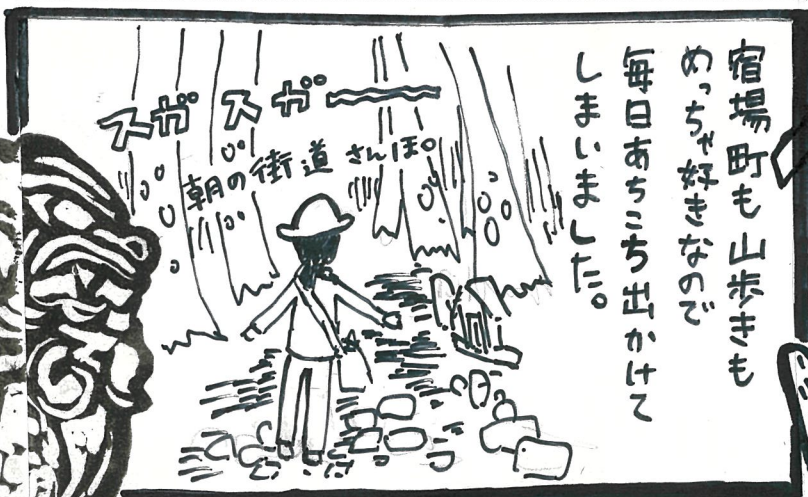 宿場町も山歩きも
めっちゃ好きなので
毎日あちこち出かけて
しまいました。
スガスガーー
朝の街道さんぽ。